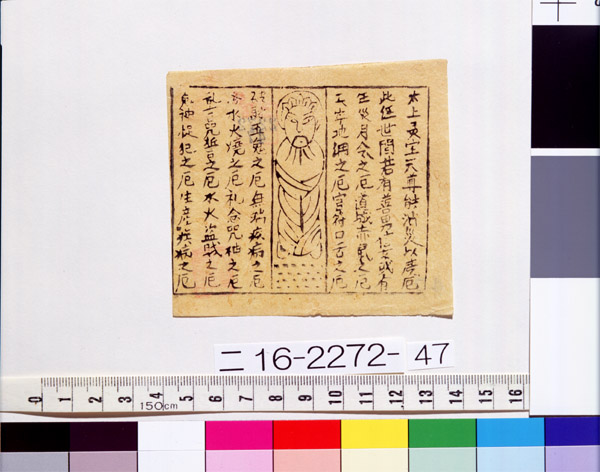 太上灵宝天尊能消災以度厄
此世間若有善男信女或有
年災月之厄道之厄
天地網之厄官符口舌之厄
之厄無端疾病之厄
水火燒之厄礼念咒神之厄
言咒誓之厄水火盗賊之厄
鬼神犯之厄生産疾病之厄
二16-2272-47
0 1 2 3 4 5 6 7 8 9 10 11 12 13 14 15 16
150cm